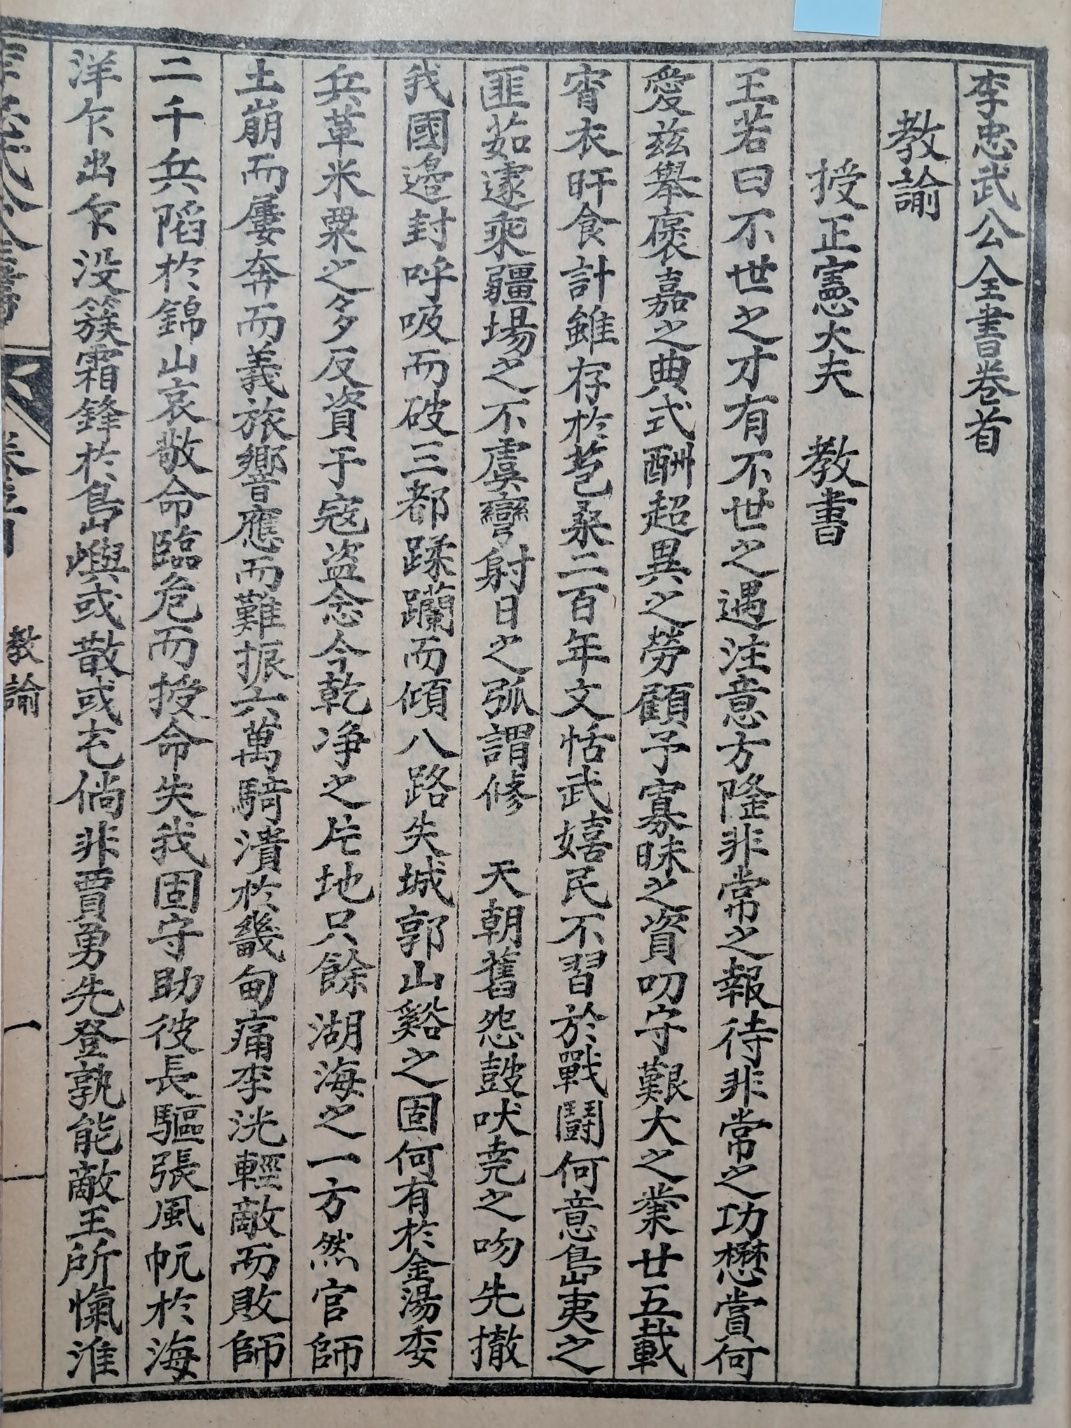 李忠武公全書卷首
教諭
授正憲大夫　教書
王若曰不世之才有不世之遇注意方隆非常之報待非常之功懋賞何
愛茲舉褒嘉之典式酬超異之勞顧予寡昧之資叨守艱大之業廿五載
宵衣旰食計雖存於苞桑二百年文恬武嬉民不習於戰鬪何意島夷之
匪茹遽乘疆場之不虞彎射日之弧謂修　天朝舊怨鼓吠堯之吻先撤
我國邊封呼吸而破三都蹂躪而傾八路失城郭山谿之固何有於金湯委
兵革米粟之多反資于寇盜念今乾净之片地只餘湖海之一方然官師
土崩而屢奔而義旅響應而難振六萬騎潰於畿甸痛李洸輕敵而敗師
二千兵陷於錦山哀敬命臨危而授命失我固守助彼長驅張風帆於海
洋乍出乍没簇霜鋒於島嶼或散或屯倘非賈勇先登孰能敵王所愾淮
教諭
一